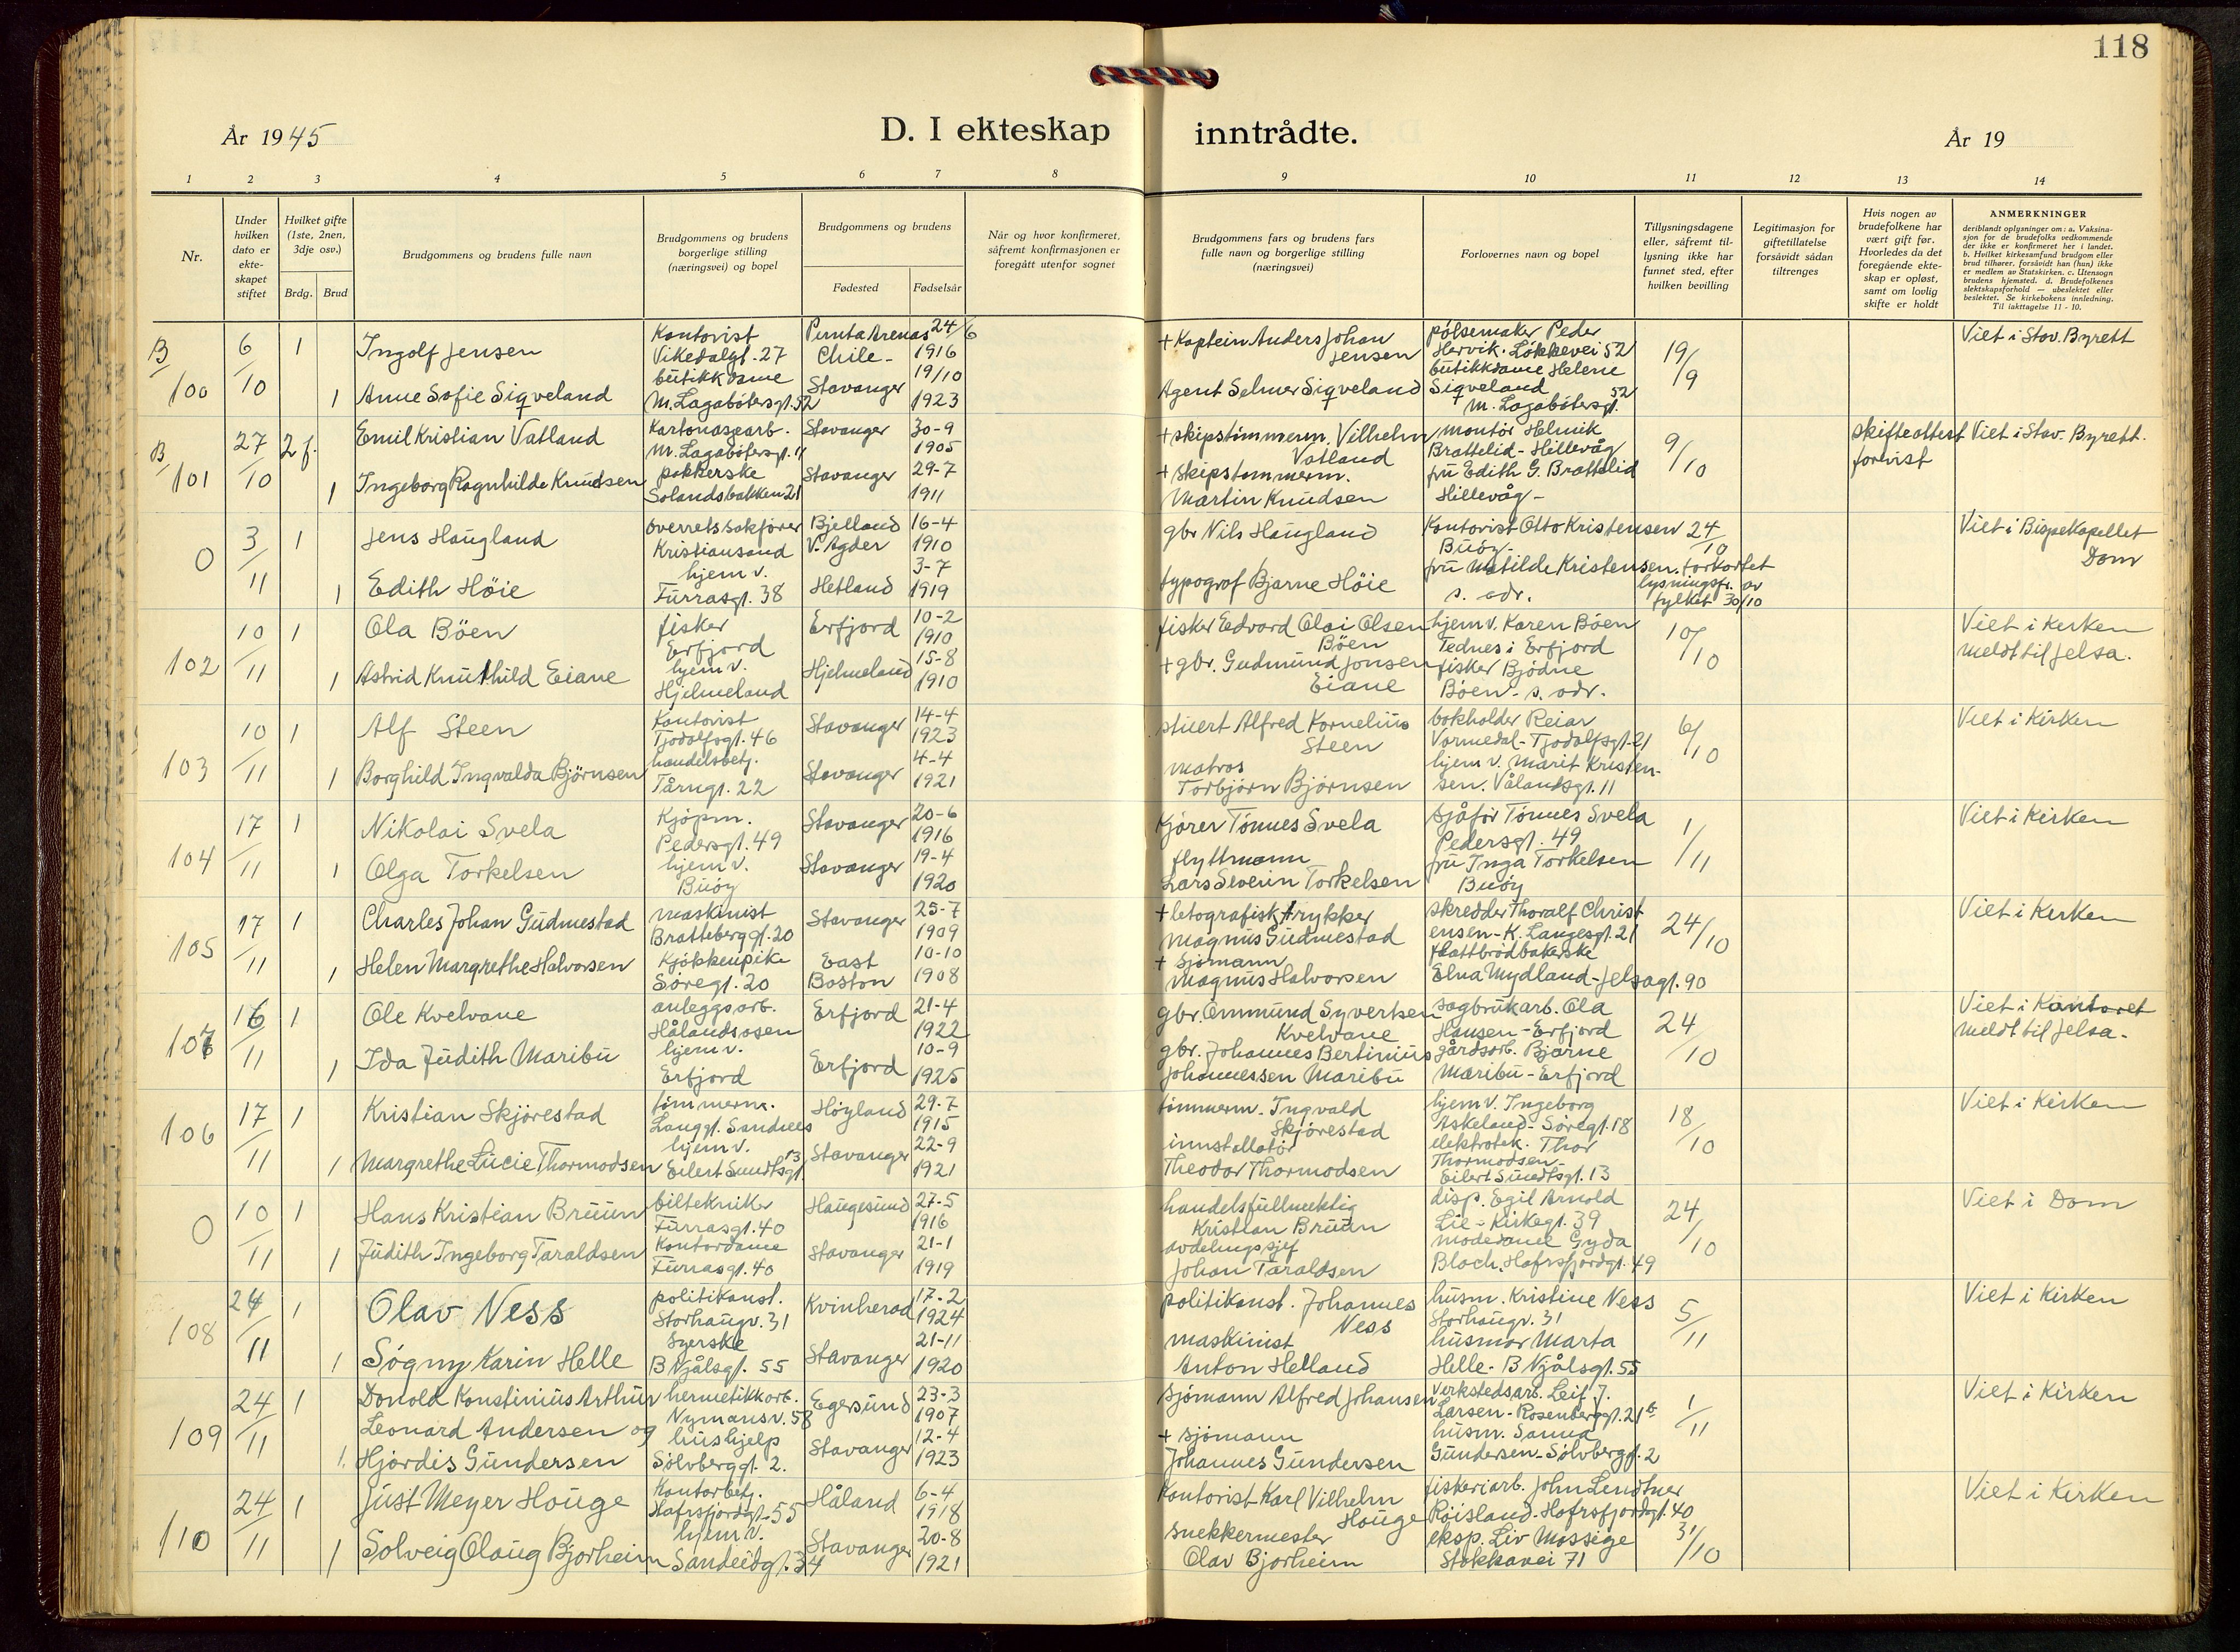 118
År 1945
D. I ekteskap inntrådte.
År 19
1 2 3 4 5 6 7 8 9 10 11 12 13 14
Nr.
Under hvilken dato er ekte-skapet stiftet
Hvilket gifte (1ste, 2nen, 3dje osv.)
Brdg. Brud
Brudgommens og brudens fulle navn
Brudgommens og brudens borgerlige stilling (næringsvei) og bopel
Brudgommens og brudens
Fødested Fødselsår
Når og hvor konfirmeret, såfremt konfirmasjonen er foregått utenfor sognet
Brudgommens fars og brudens fars fulle navn og borgerlige stilling (næringsvei)
Forlovernes navn og bopel
Tillysningsdagene eller, såfremt til-lysning ikke har funnet sted, efter hvilken bevilling
Legitimasjon for giftetillatelse forsåvidt sådan tiltrenges
Hvis nogen av brudefolkene har vært gift før. Hvorledes da det foregående ekte-skap er opløst, samt om lovlig skifte er holdt
ANMERKNINGER
deriblandt oplysninger om: a. Vaksina-sjon for de brudefolks vedkommende der ikke er konfirmeret her i landet. b. Hvilket kirkesamfund brudgom eller brud tilhører, forsåvidt han (hun) ikke er medlem av Statskirken. c. Utensogn brudens hjemsted. d. Brudefolkenes slektskapsforhold — ubeslektet eller beslektet. Se kirkebokens innledning. Til iakttagelse 11 - 10.
B 100 6/10 1 Ingolf Jensen Kontorist Vikedalgt. 27 Punta Arenas Chile - 24/6 1916 + Kaptein Anders Johan Jensen pølsemaker Peder Hervik. Løkkevei 52 19/9 Viet i Stav. Byrett
1 Anne Sofie Siqveland butikkdame M. Lagabøtersgt. 52 Stavanger 19/10 1923 Agent Selmer Siqveland butikkdame Helene Siqveland M. Lagabøtersgt. 52
B 101 27/10 2 f. Emil Kristian Vatland Kartonasgearb. M. Lagabøtersgt. 11 Stavanger 30-9 1905 + skipstømmerm. Vilhelm Vatland montør Helmik Brattelid - Hillevåg 9/10 skifteattest forvist Viet i Stav. Byrett.
1 Ingeborg Ragnhilde Knudsen pakkerske Solandsbakken 21 Stavanger 29-7 1911 + skipstømmerm. Martin Knudsen fru Edith G. Brattelid Hillevåg -
0 3/11 1 Jens Haugland overretssakfører Kristiansand Bjelland V. Agder 16-4 1910 gbr. Nils Haugland Kontorist Otto Kristensen Buøy - 24/10 Viet i Bispekapellet Dom
1 Edith Høie hjem v. Furrasgt. 38 Hetland 3-7 1919 typograf Bjarne Høie fru Matilde Kristensen. s. adr. forkortet lysningsfr. av fylket 30/10
102 10/11 1 Ola Bøen fisker Erfjord Erfjord 10-2 1910 fisker Edvard Olai Olsen Bøen hjem v. Karen Bøen Tednes i Erfjord 10/10 Viet i kirken meldt til Jelsa.
1 Astrid Knuthild Eiane hjem v. Hjelmeland Hjelmeland 15-8 1910 + gbr. Gudmund Jonsen Eiane fisker Bjødne Bøen - s. adr.
103 10/11 1 Alf Steen Kontorist Tjodolfsgt. 46 Stavanger 14-4 1923 stuert Alfred Kornelius Steen bokholder Reiar Vormedal - Tjodolfsgt. 21 6/10 Viet i Kirken
1 Borghild Ingvalda Bjørnsen handelsbetj. Tårngt. 22 Stavanger 4-4 1921 matros Torbjørn Bjørnsen hjem v. Marit Kristensen. Vålandsgt. 11
104 17/11 1 Nikolai Svela Kjøpm. Pedersgt. 49 Stavanger 20-6 1916 Kjører Tønnes Svela sjåfør Tønnes Svela Pedersgt. 49 1/11 Viet i Kirken
1 Olga Torkelsen hjem v. Buøy Stavanger 19-4 1920 flyttmann Lars Severin Torkelsen fru Inga Torkelsen Buøy
105 17/11 1 Charles Johan Gudmestad maskinist Brattebergt. 20 Stavanger 25-7 1909 + letografisk trykker Magnus Gudmestad skredder Thoralf Christensen - K. Langesgt. 21 24/10 Viet i Kirken
1 Helen Margrethe Halvorsen Kjøkkenpike Søregt. 20 East Boston 10-10 1908 + Sjømann Magnus Halvorsen flattbrødbakerske Elna Mydland - Jelsagt. 90
107 16/11 1 Ole Kvelvane anleggsarb. Hålandsosen Erfjord 21-4 1922 gbr. Ommund Syvertsen Kvelvane sagbrukarb. Ola Hansen - Erfjord 24/10 Viet i Kontoret meldt til Jelsa.
1 Ida Judith Maribu hjem v. Erfjord Erfjord 10-9 1925 gbr. Johannes Bertinius Johannessen Maribu gårdsarb. Bjarne Maribu - Erfjord
106 17/11 1 Kristian Skjørestad tømmerm. Langgt. Sandnes Høyland 29-7 1915 tømmerm. Ingvald Skjørestad hjem v. Ingeborg Askeland - Søregt. 18 18/10 Viet i Kirken
1 Margrethe Lucie Thormodsen hjem v. Eilert Sundtsgt. 13 Stavanger 22-9 1921 innstallatør Theodor Thormodsen elektrotek. Thor Thormodsen Eilert Sundtsgt. 13
0 10/11 1 Hans Kristian Bruun bilteknikr Furrasgt. 40 Haugesund 27-5 1916 handelsfullmektig Kristian Bruun disp. Egil Arnold Lie - Kirkegt. 39 24/10 Viet i Dom
1 Judith Ingeborg Taraldsen Kontordame Furrasgt. 40 Stavanger 21-1 1919 avdelingssjef Johan Taraldsen modedame Gyda Bloch. Hafrsfjordgt. 49
108 24/11 1 Olav Ness politikonst. Storhaugv. 31 Kvinherad 17-2 1924 politikonst. Johannes Ness husm. Kristine Ness Storhaugv. 31 5/11 Viet i Kirken
1 Søgny Karin Helle Syerske B Njålsgt. 55 Stavanger 21-11 1920 maskinist Anton Helland husmor Marta Helle - B Njålsgt. 55
109 24/11 1 Donold Konstinius Arthur Leonard Andersen og hermetikkarb. Nymansv. 58 Egersund 23-3 1907 Sjømann Alfred Johansen Verkstedsarb. Leif J. Larsen - Rosenberggt. 21 b 1/11 Viet i Kirken
1. Hjørdis Gundersen hushjelp Sølvberggt. 2. Stavanger 12-4 1923 + sjømann Johannes Gundersen husm. Sanna Gundersen - Sølvberggt. 2
110 24/11 1 Just Meyer Houge Kontorbetj. Hafrsfjordgt. 55 Håland 6-4 1918 Kontorist Karl Vilhelm Houge fiskeriarb. John Lendtner Røisland - Hafrsfjordgt. 40 31/10 Viet i Kirken
1 Solveig Olaug Bjorheim hjem v. Sandeidgt. 34 Stavanger 20-8 1921 snekkermester Olav Bjorheim eksp. Liv Mossige Stokkavei 71